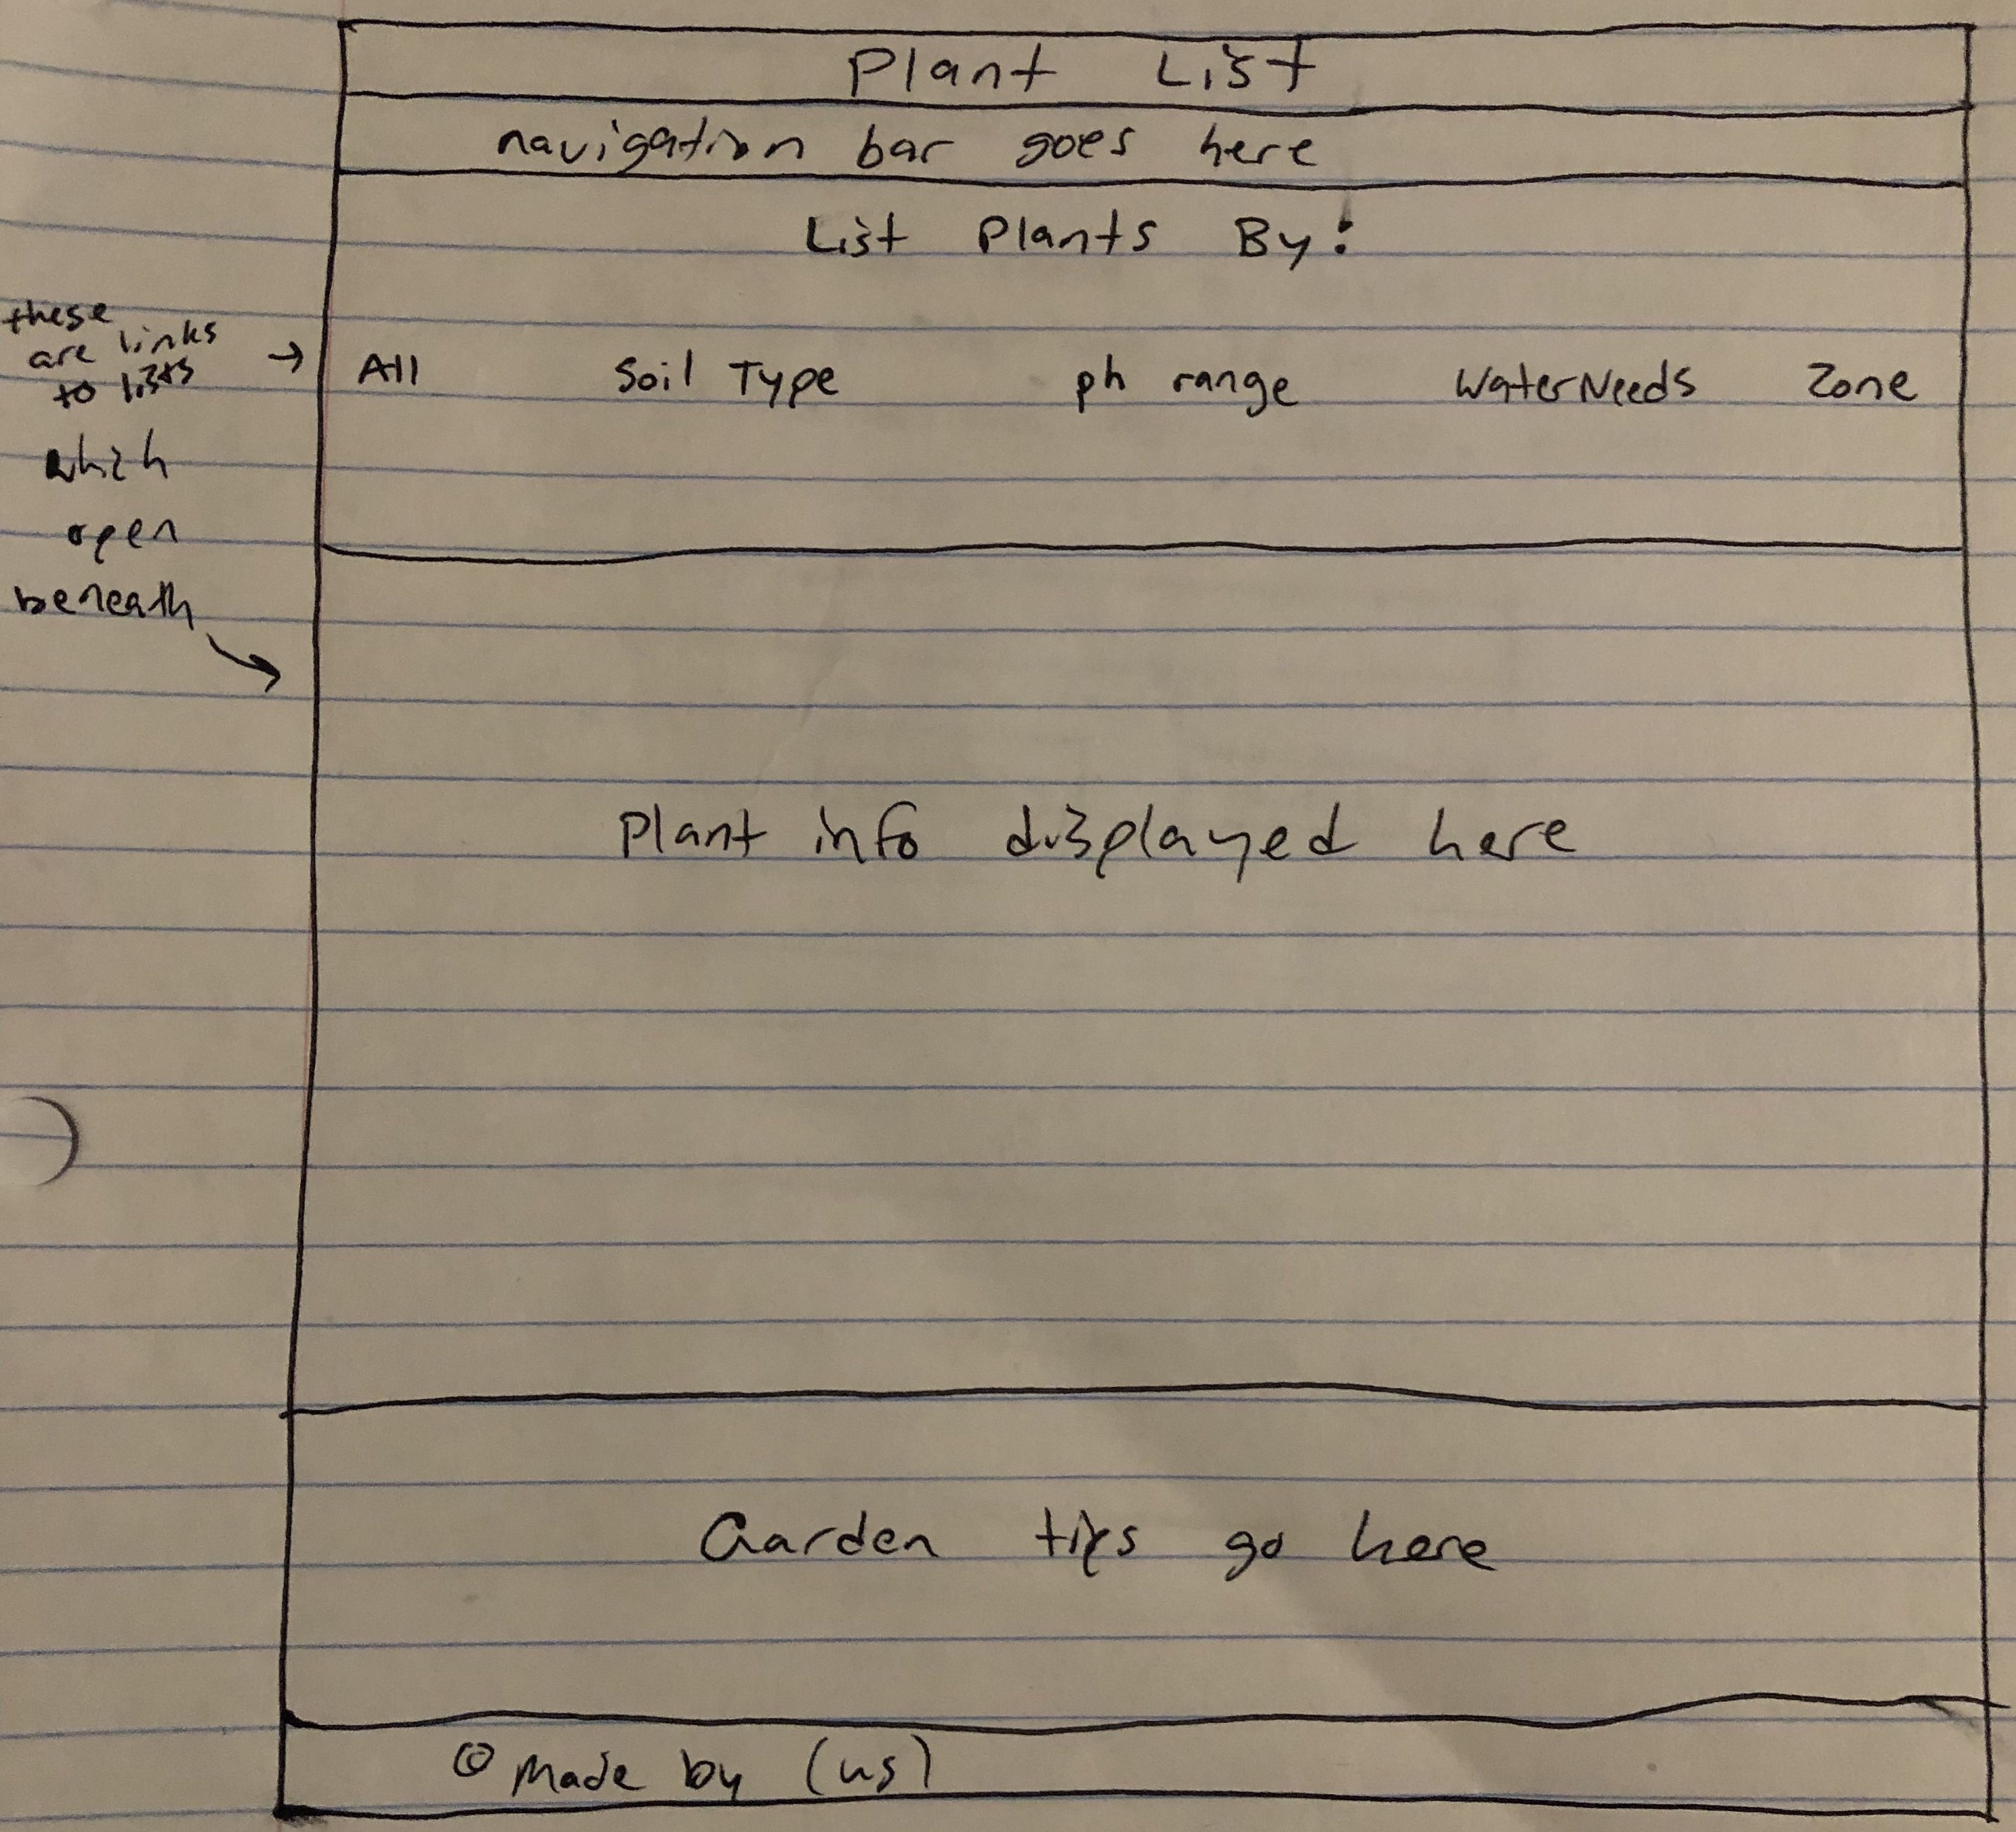 Plant List
navigation bar goes here
List Plants By:
these
are links
to lists
which
open
beneath
→ All Soil Type ph range WaterNeeds Zone
Plant info displayed here
Garden tips go here
© Made by (us)